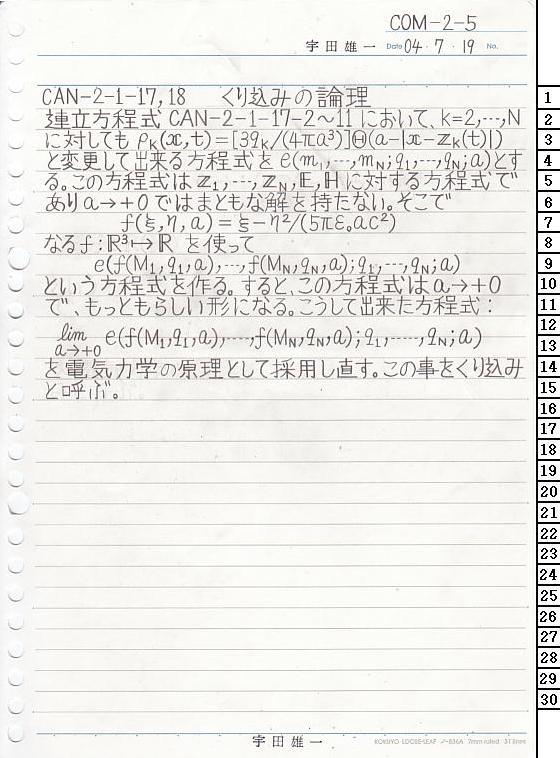 COM-2-5
宇田雄一 Date 04・7・19 No.
CAN-2-1-17,18 くり込みの論理
連立方程式 CAN-2-1-17-2～11 において、k=2,…,N
に対しても ρₖ(𝕩,t)=[3qₖ/(4πa³)]Θ(a-|𝕩-ℤₖ(t)|)
と変更して出来る方程式を e(m₁,…,m_N;q₁,…,q_N;a)とす
る。この方程式は ℤ₁,…,ℤ_N,𝔼,ℍ に対する方程式で
あり a→+0 ではまともな解を持たない。そこで
f(ξ,η,a)=ξ-η²/(5πε₀ac²)
なる f:ℝ³↦ℝ を使って
e(f(M₁,q₁,a),…,f(M_N,q_N,a);q₁,…,q_N;a)
という方程式を作る。すると、この方程式は a→+0
で、もっともらしい形になる。こうして出来た方程式：
lim e(f(M₁,q₁,a),…,f(M_N,q_N,a);q₁,…,q_N;a)
a→+0
を電気力学の原理として採用し直す。この事をくり込み
と呼ぶ。
1
2
3
4
5
6
7
8
9
10
11
12
13
14
15
16
17
18
19
20
21
22
23
24
25
26
27
28
29
30
宇田雄一 KOKUYO LOOSE-LEAF ノ-836A 7mm ruled 31 lines